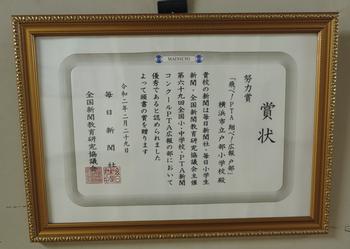 MAINICHI
賞状
努力賞
「飛べ!PTA 翔べ!広報戸部」
横浜市立戸部小学校殿
貴校の新聞は毎日新聞社・毎日小学生
新聞・全国新聞教育研究協議会主催
第六十九回全国小・中学校・PTA新聞
コンクールPTA広報の部において
優秀であると認められました
よって頭書の賞を贈ります
令和二年二月二十九日
毎日新聞社
全国新聞教育研究協議会